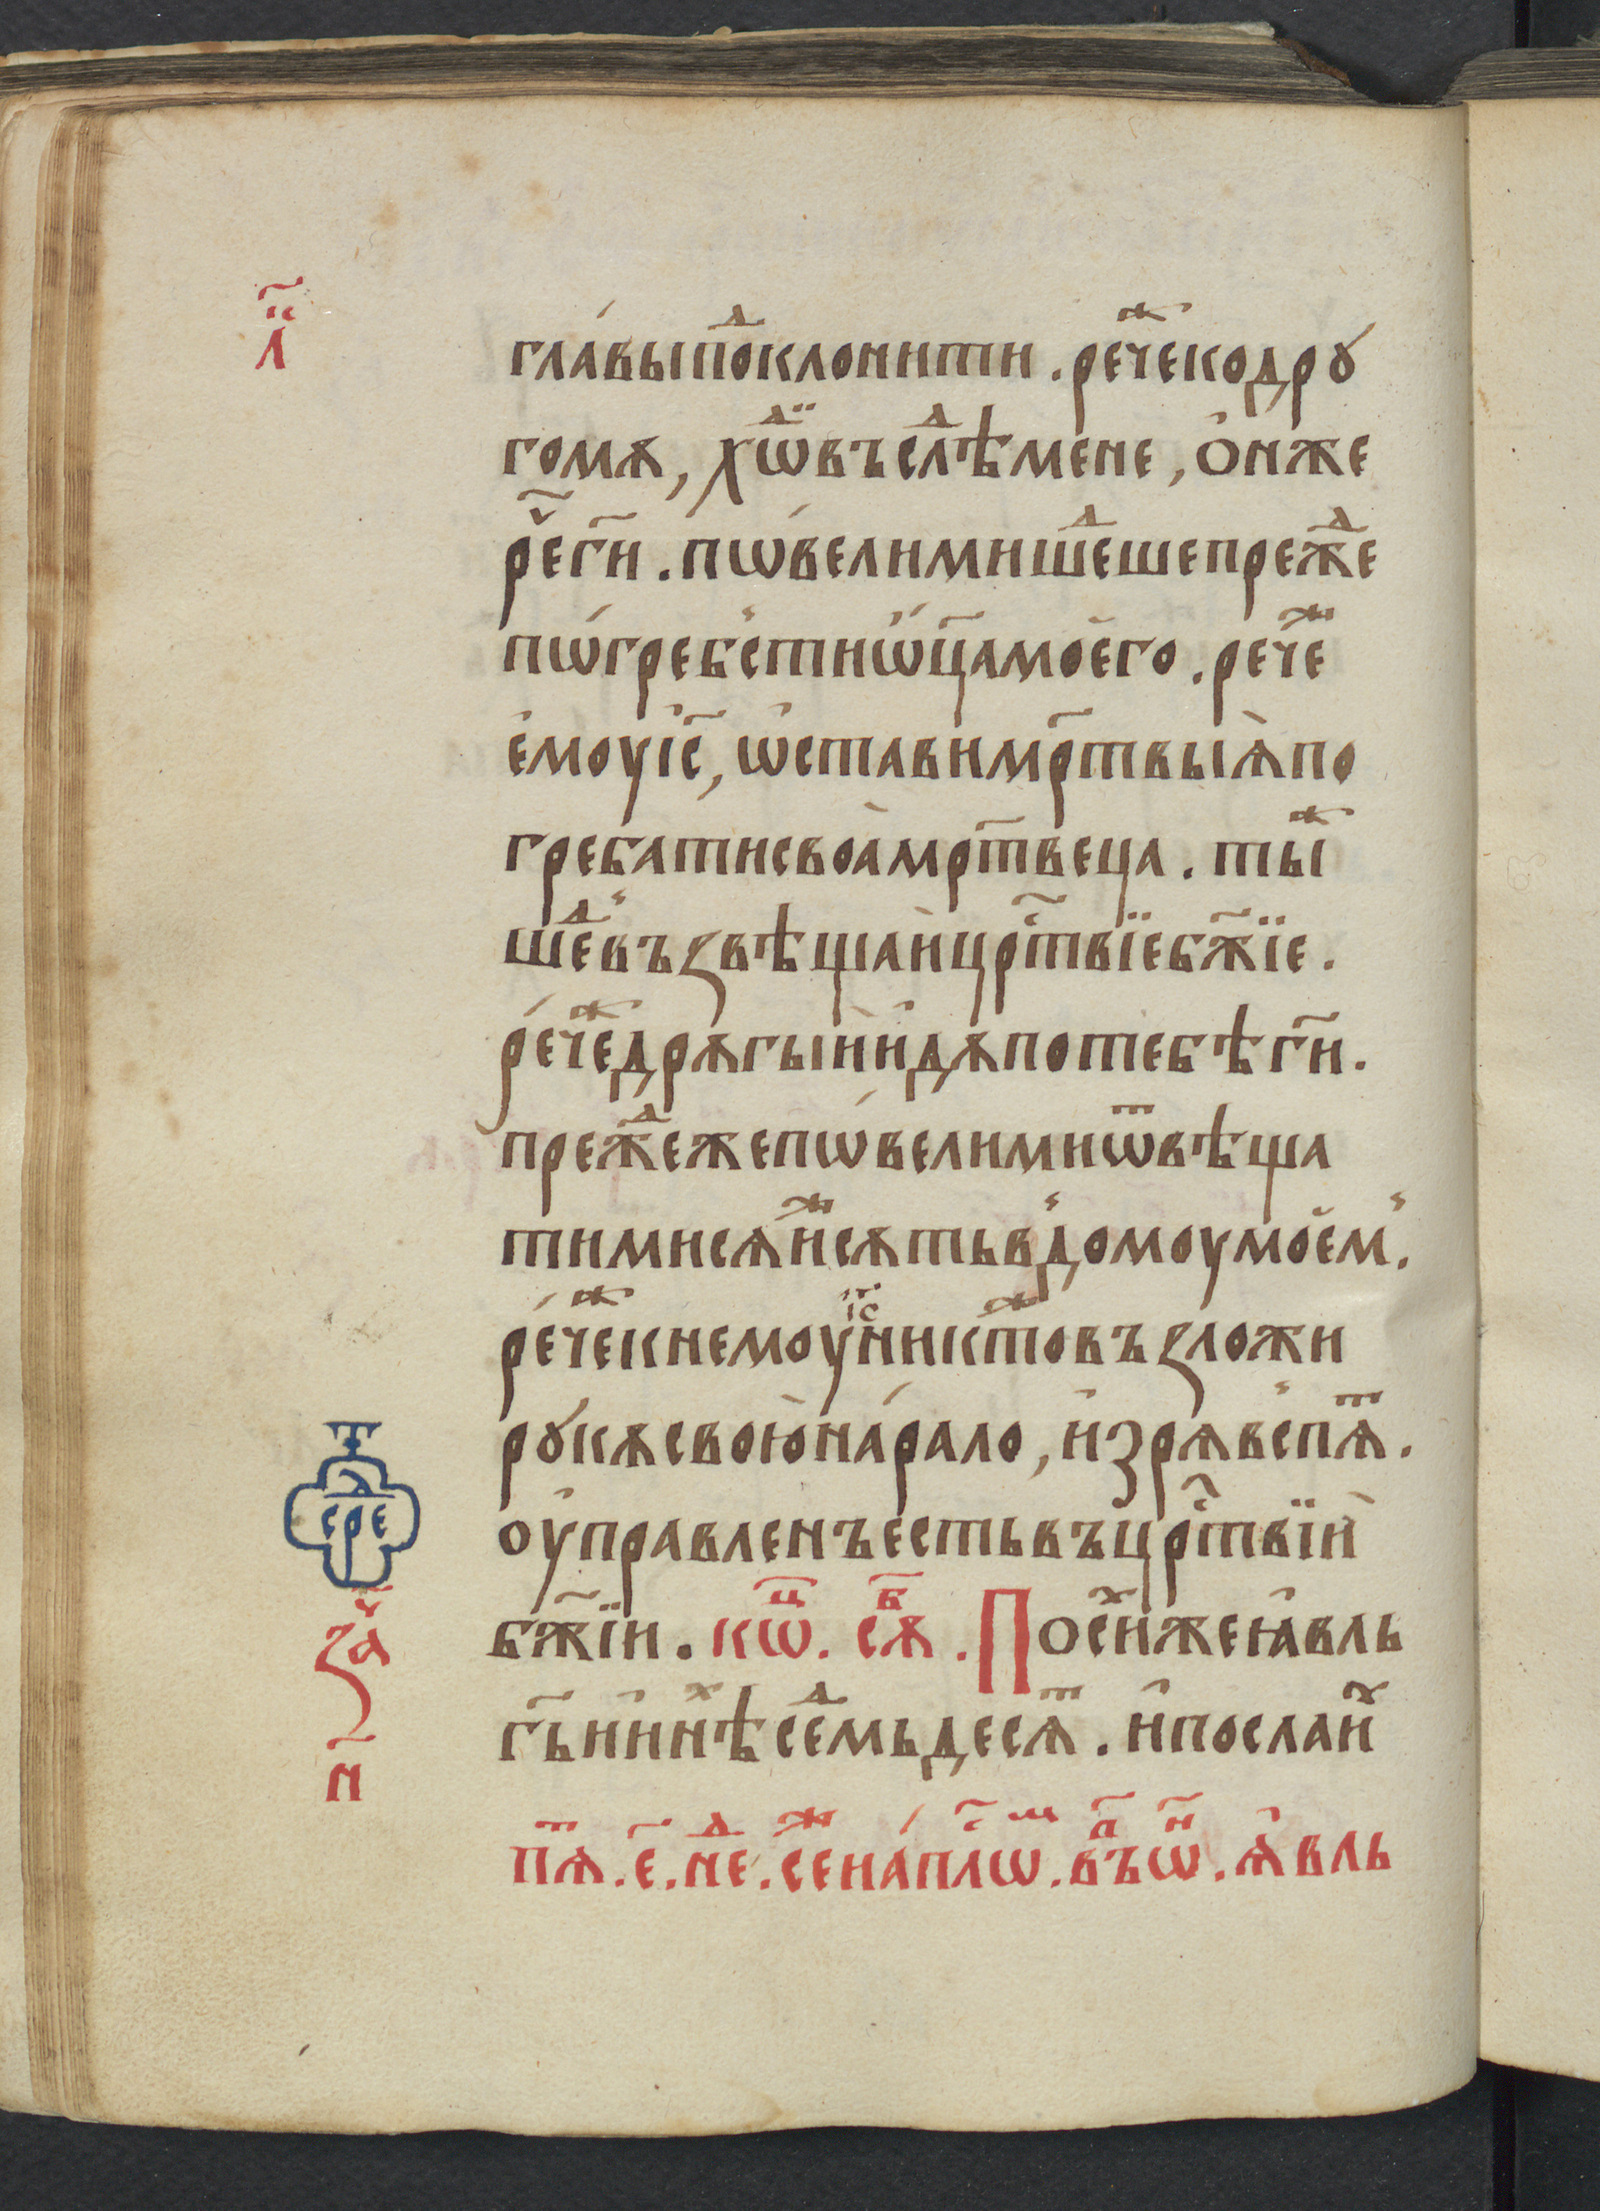 л҃
гла́выпоⷣклонити . речеⷤкодрꙋ
гомѫ , хѡⷣвъслѣⷣмене , ѻ҆нже
рⷱ҇ег҃и . пѡ́велимишеⷣшепреⷤдⷣе
пѡ́гребⸯстиѡ҆ц҃амоего . речеⷤ
е҆моуі҆с҃ , ѡ҆ставимр҃твыѧ҆по
гребатисвоѧ҆мрт҃веца . тыⷤ
шеⷣвⸯъꙁвѣщаи҆црⷭ҇твїебж҃їе .
ре́чеⷤдрѫгыи҆и҆дѫпотебѣг҃и .
прежⷣежепѡ́велимиѡⷮвѣща
тимисѧиⷤсѫтьвⸯдомоумоемⸯ .
ре́чеⷤкнемоуі҆с҃никтоⷤвъꙁложи
рꙋкѫсвоюна́рало , и҆зрѧвⸯспѧⷮ .
оу҆правленъестьвъцрⷭ҇твїи
бж҃їи . кѡⷰ . сѫⷠ . Посиⷯжеꙗ҆вль
гь҃и҆и҆нѣⷯсеⷣмьдесѧⷮ . и҆послаиⷯ
срⷣе
заⷱ
н҃
пѧⷮ . е҃ . неⷣ . сеⷤна́плⷭ҇ѡ . в҃ъѡⷩ . ꙗ҆вль